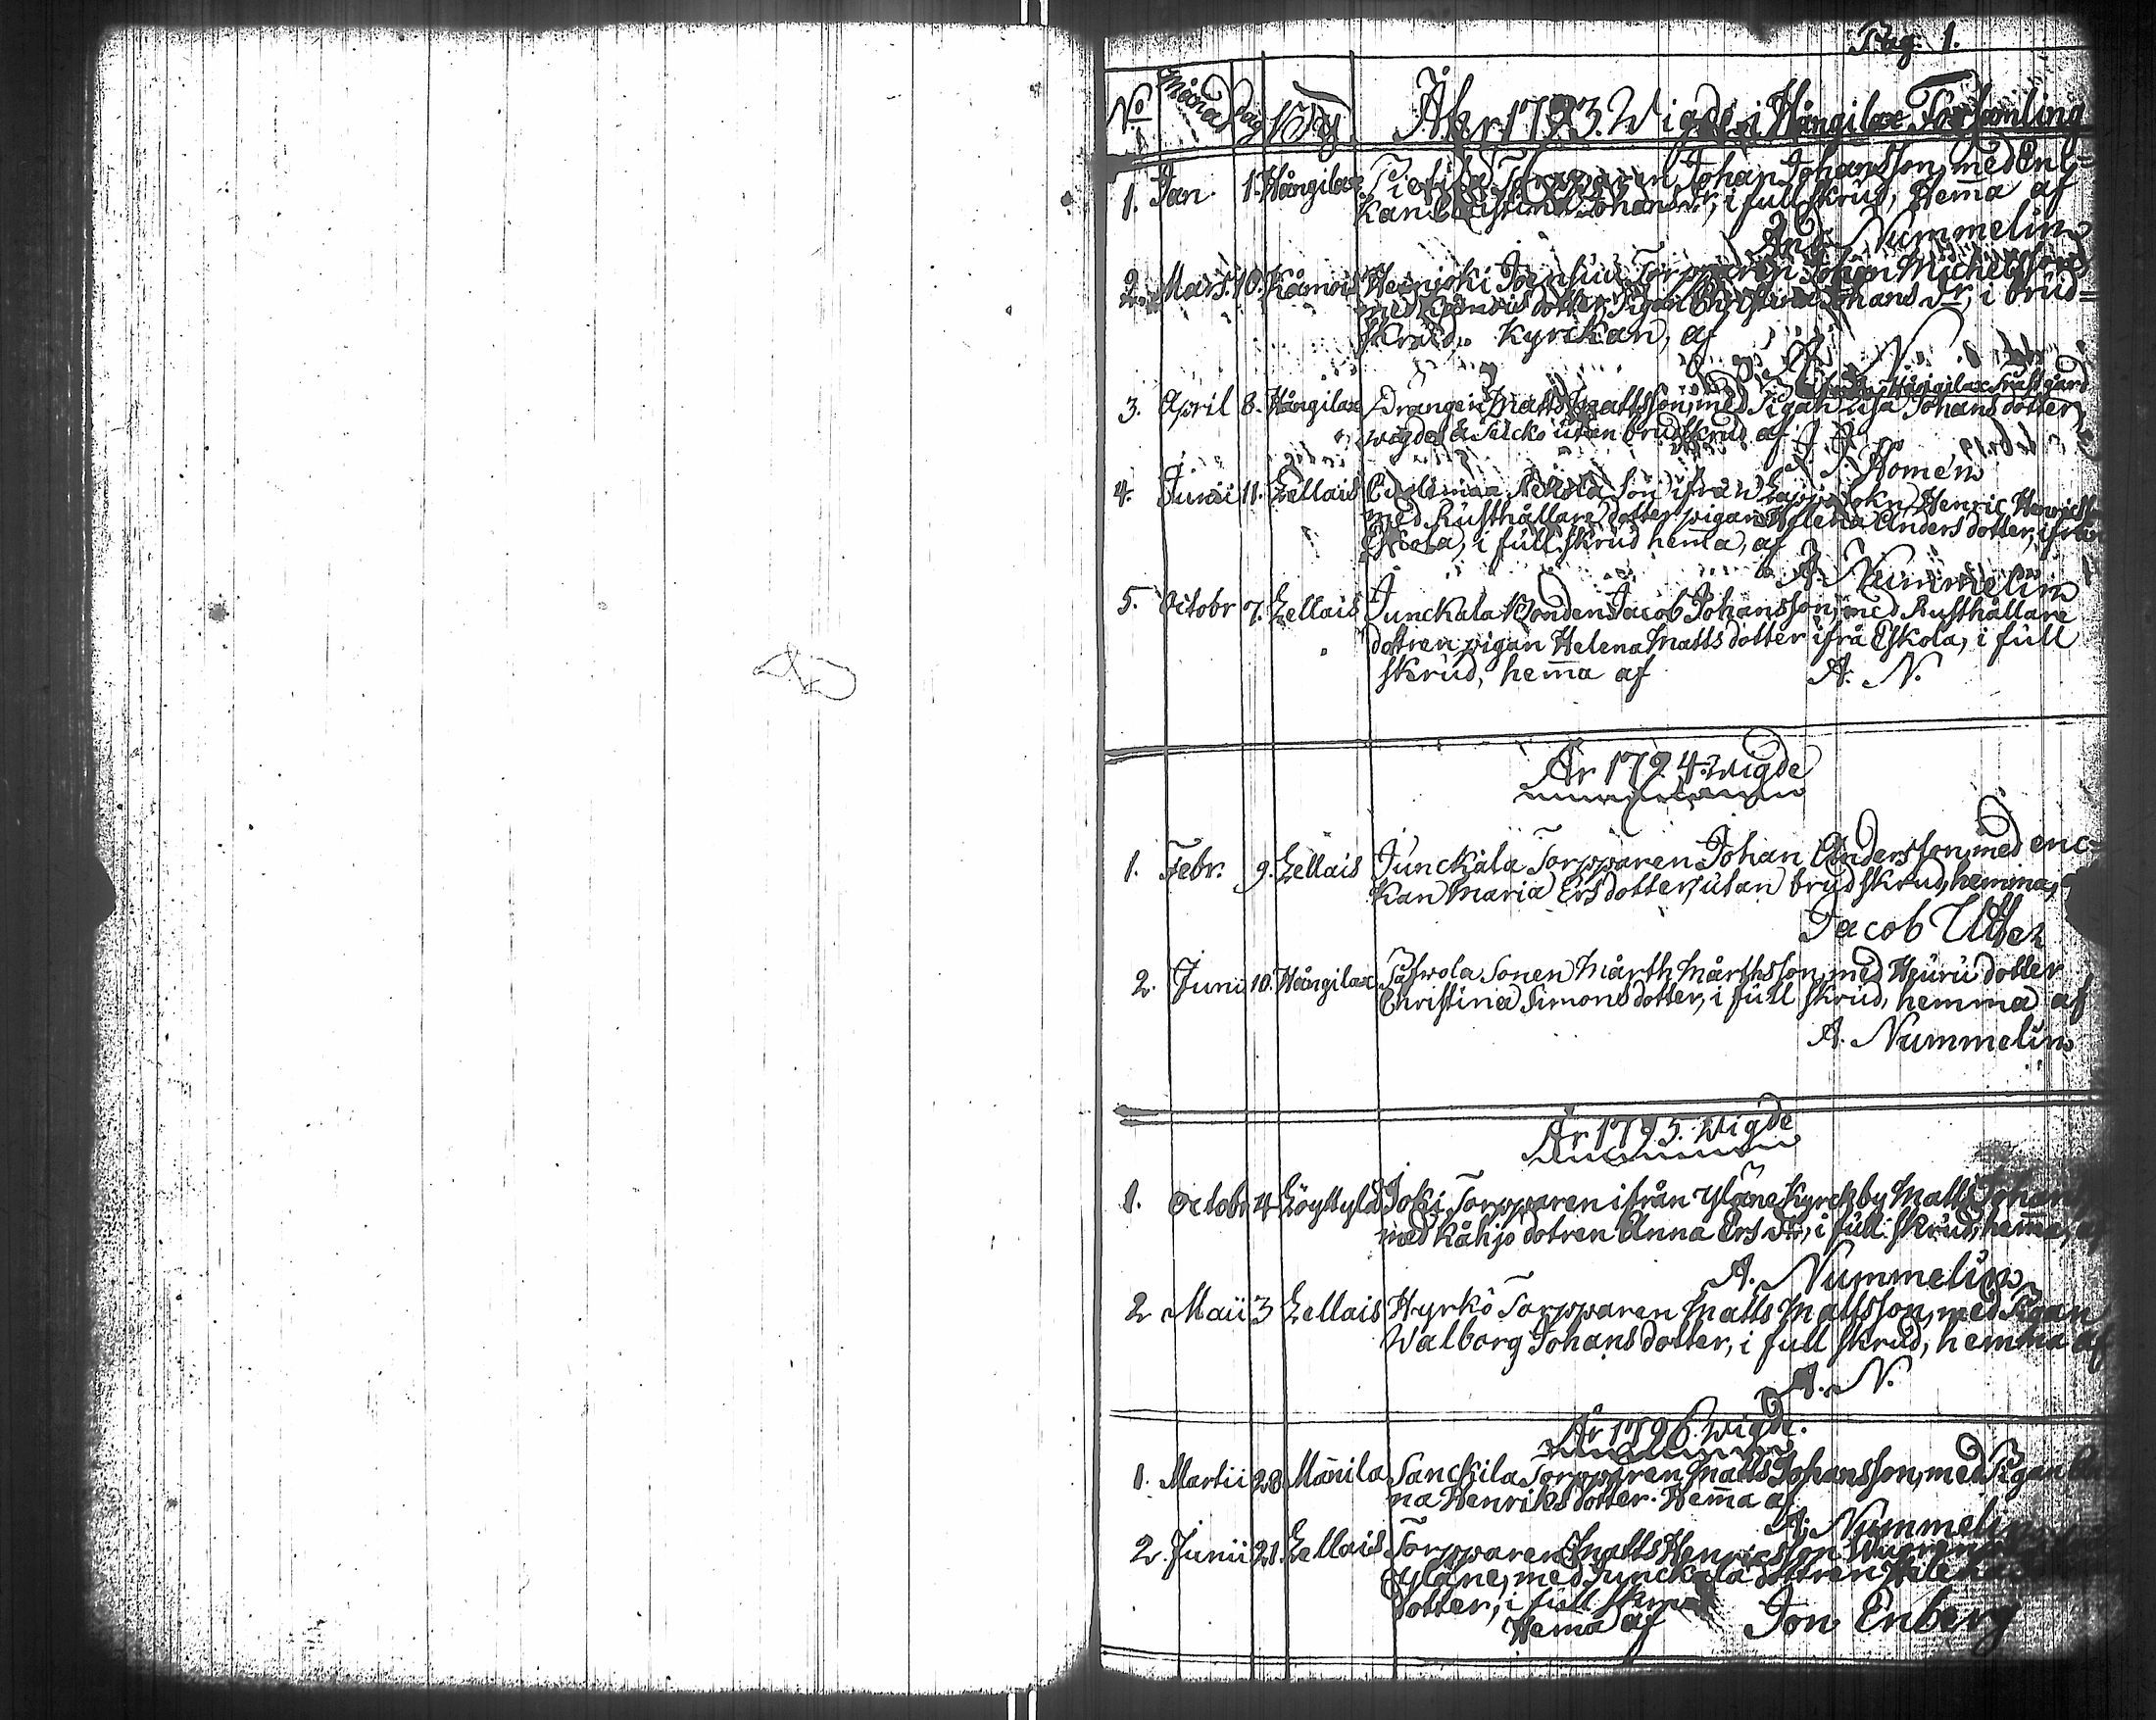 Pag. 1.
No Månad dag By Åhr 1793. Wigde i Hångilax Församling
1. Jan 1. Hångilax Torpparen Johan Johansson, med En-
kan Christina Johans dr, i full skrud, Hem̅a af
And. Nummelin
2. Mars. 10. Kåmois Heinjoki Torpparen Johan Michelsson
med dotter, Pigan Christina Johans dr, i brud-
skrud. Kyrckan, af
A. N.
Hångilax Prästgård
3. April 8. Hångilax Drängen Matts Mattsson, med Pigan Lisa Johans dotter
wigdes utan brudskrud af J. J.
Homén
4. Junii 11. Lellais son ifrån Lappi Sokn Henric Henricsson
med Rusthållare dotter pigan Helena Anders dotter, ifrån
Eskola, i full skrud hem̅a, af
A. Nummelin
5. Octobr 7. Lellais Junckala Bonden Jacob Johansson, med Rusthållare
dottren pigan Helena Matts dotter ifrå Eskola, i full
skrud, hem̅a af A. N.
År 1794. wigde
1. Febr. 9. Lellais Junckala Torpparen Johan Andersson, med enc-
kan Maria Ersdotter, utan brudskrud, hemma,
Jacob Utter
2. Juni 10. Hångilax Sonen Mårth Mårthsson, med Heuru dotter
Christina Simons dotter, i full skrud, hemma af
A. Nummelin
År 1795. Wigde
1. Octobr 4 Löyttylä Joki Torpparen ifrån Yläne Kyrckby Matts Johans
med Kåhjo dotren Anna Ers dr, i full skrud, hem̅a,
A. Nummelin
2 Maii 3 Lellais Hyrkö Torpparen Matts Mattsson, med Pigan
Walborg Johans dotter, i full skrud, hemma af
A. N.
År 1796. wigde.
1. Martii 28. Man̅ila Sanckila Torpparen Matts Johansson, med Pigan
na Henriks dotter. Hem̅a af
A. Nummelin
2. Junii 21. Lellais Torpparen Matts Henricsson
Yläne, med Junckala dottren Helena
dotter, i full skrud
Hem̅a af Jon Enberg